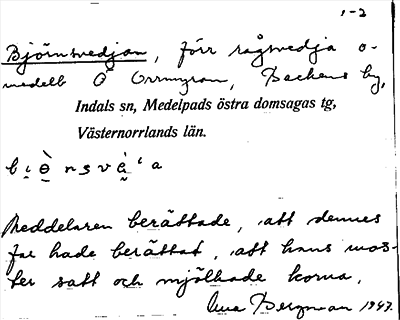 1-2
Björnsvedjan, förr rågsvedja o-
medelb Ö Orrmyran, Backens by,
Indals sn, Medelpads östra domsagas tg,
Västernorrlands län.
Meddelaren berättade, att dennes
far hade berättat, att hans mos-
ter satt och mjölkade korna.
Bergman 1947.